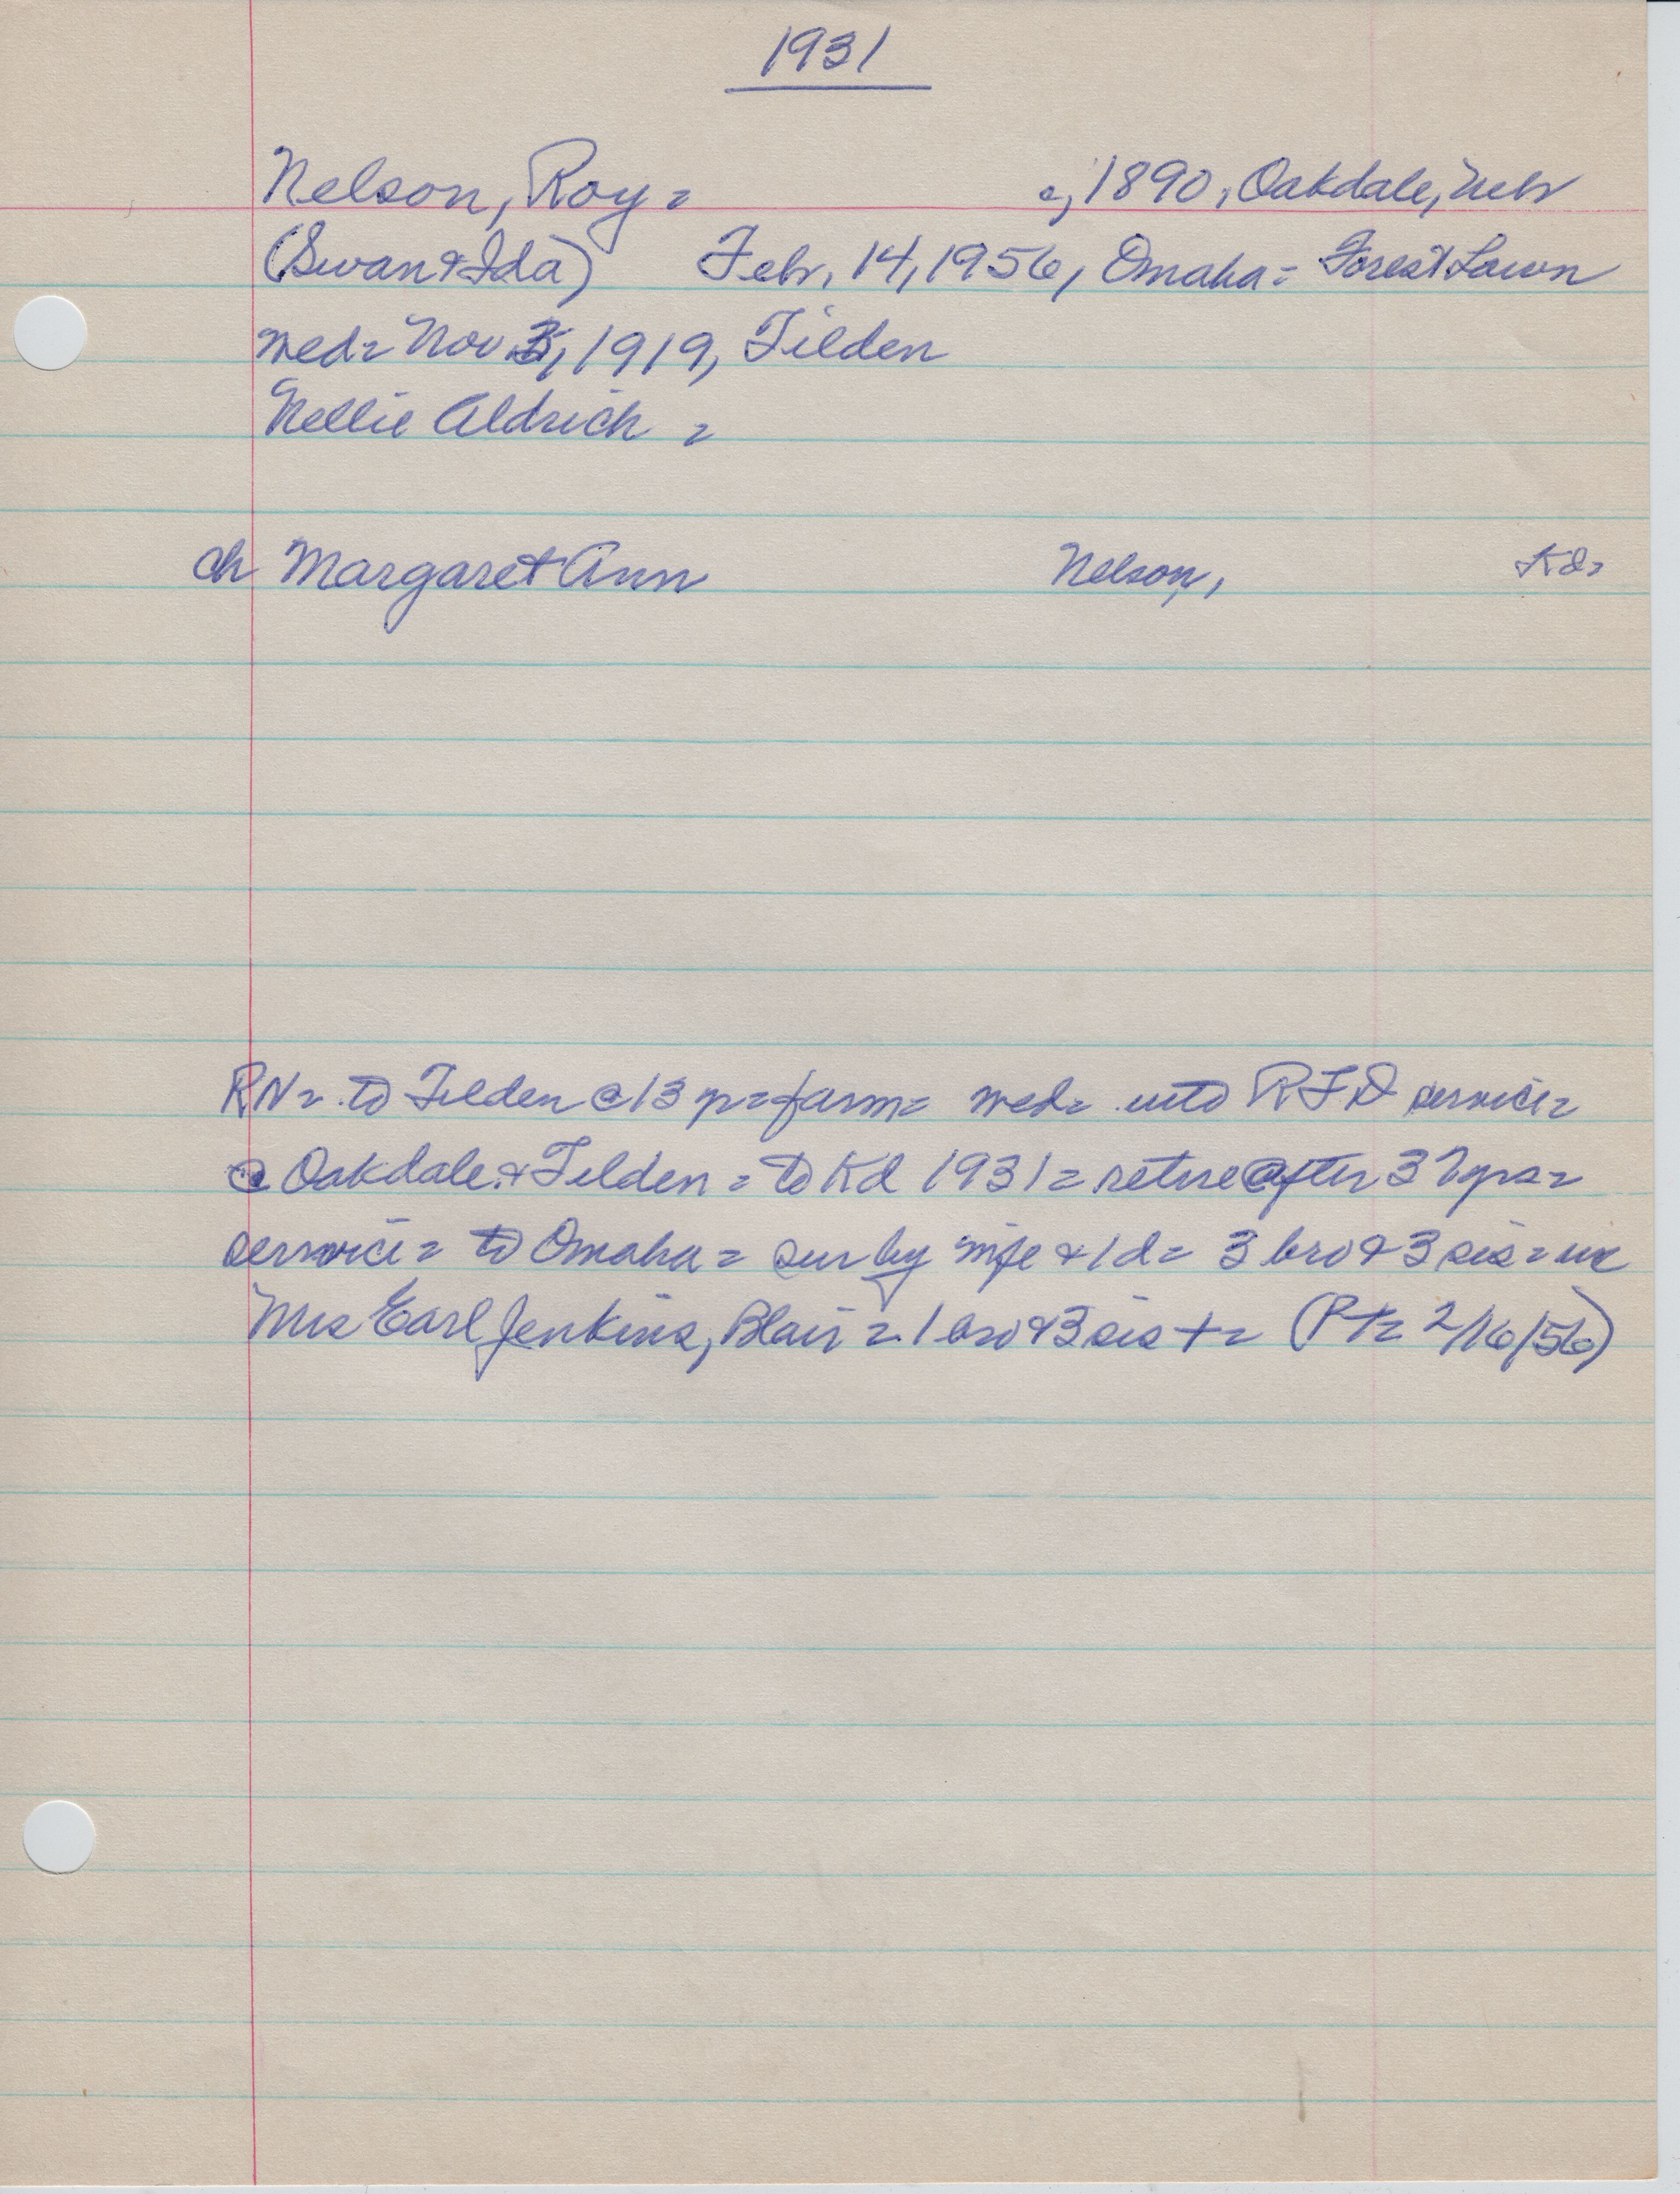 1931
Nelson, Roy = , 1890, Oakdale, Nebr
(Swan & Ida) Febr, 14, 1956, Omaha = Forest Lawn
wed = Nov , 1919, Tilden
Nellie Aldrich =
ch Margaret Ann Nelson, Kd =
RN = to Tilden @ 13 y = farm = wed = into RFD service =
@ Oakdale & Tilden = to Kd 1931 = retire @ after 32 yrs =
service = to Omaha = sur by wife & 1 d = 3 bro & 3 sis =
Mrs Earl Jenkins, Blair = 1 bro & 3 sis + = (Pt = 2/16/56)